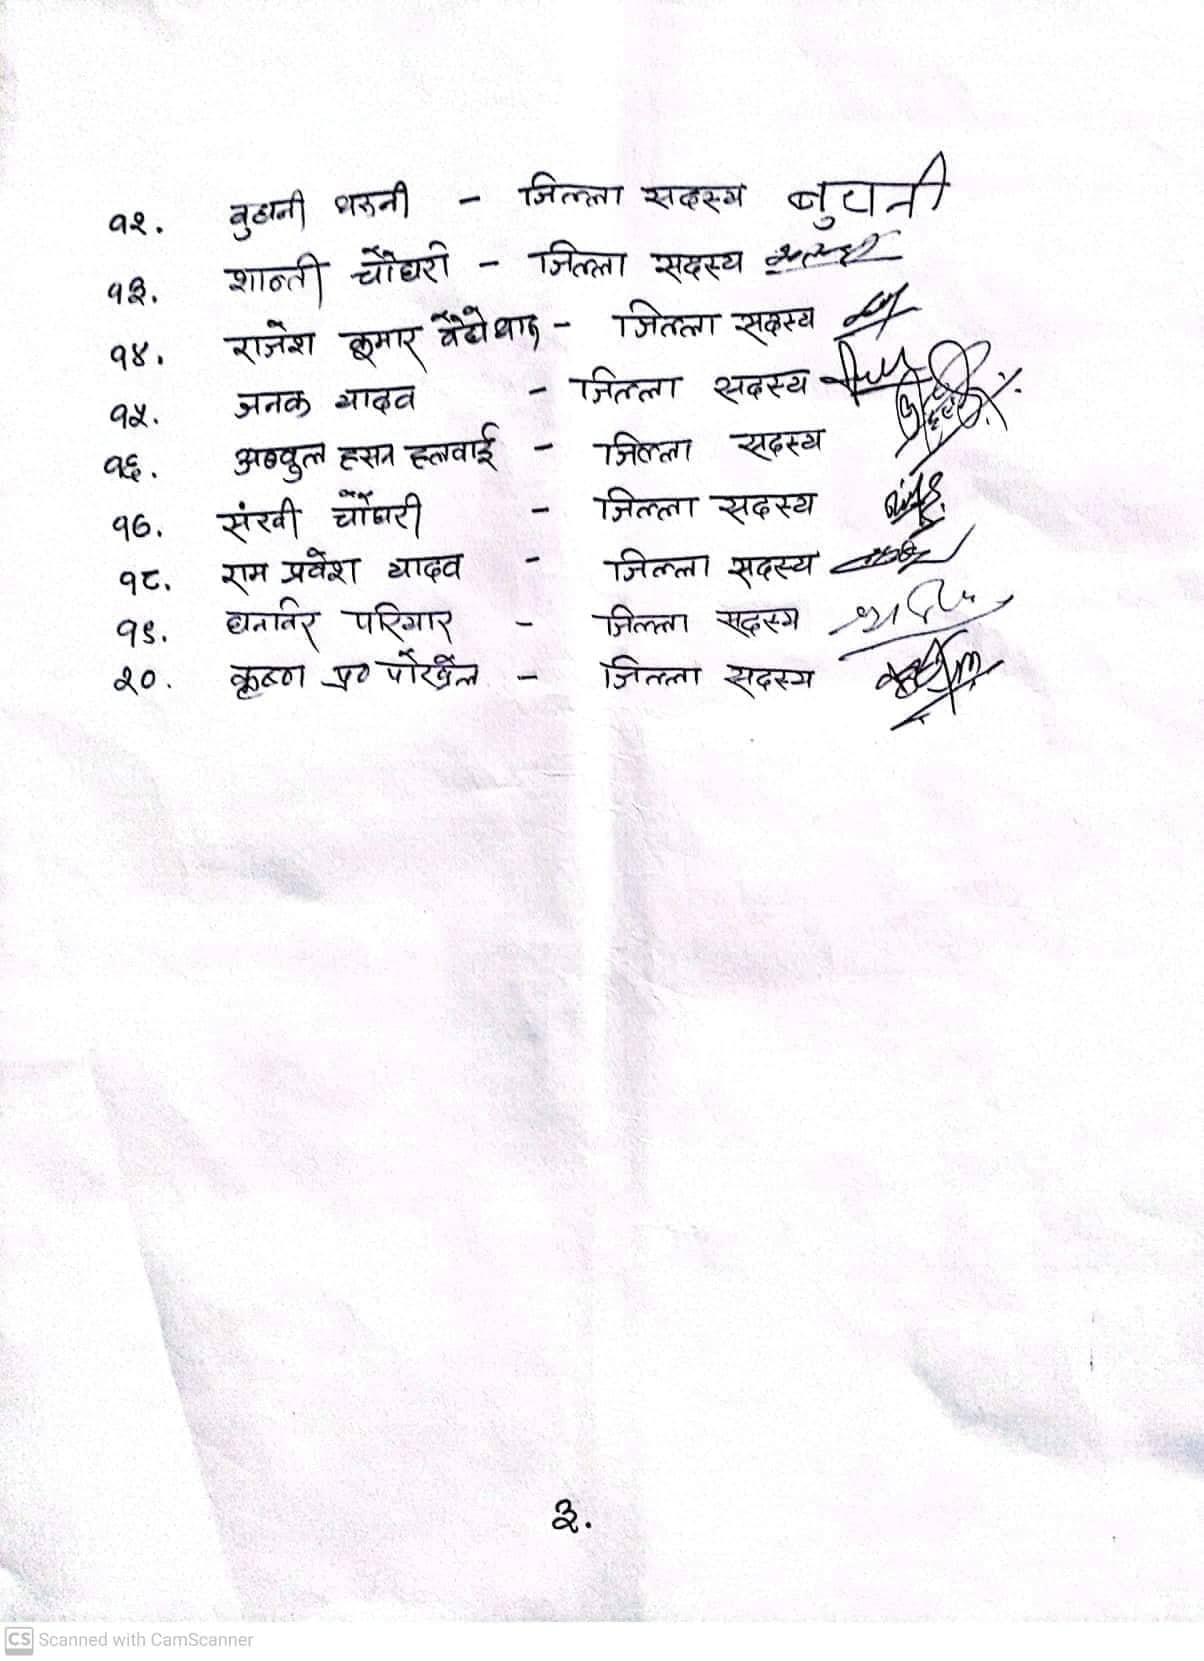 १२. बुझनी थरुनी - जिल्ला सदस्य बुधनी
१३. शान्ती चौधरी - जिल्ला सदस्य
१४. राजेश कुमार - जिल्ला सदस्य
१५. जनक यादव - जिल्ला सदस्य
१६. अब्दुल हसन हलवाई - जिल्ला सदस्य
१७. संखी चौधरी - जिल्ला सदस्य
१८. राम प्रवेश यादव - जिल्ला सदस्य
१९. धनविर परियार - जिल्ला सदस्य
२०. कृष्ण प्र० पोखरेल - जिल्ला सदस्य
३.
CS Scanned with CamScanner